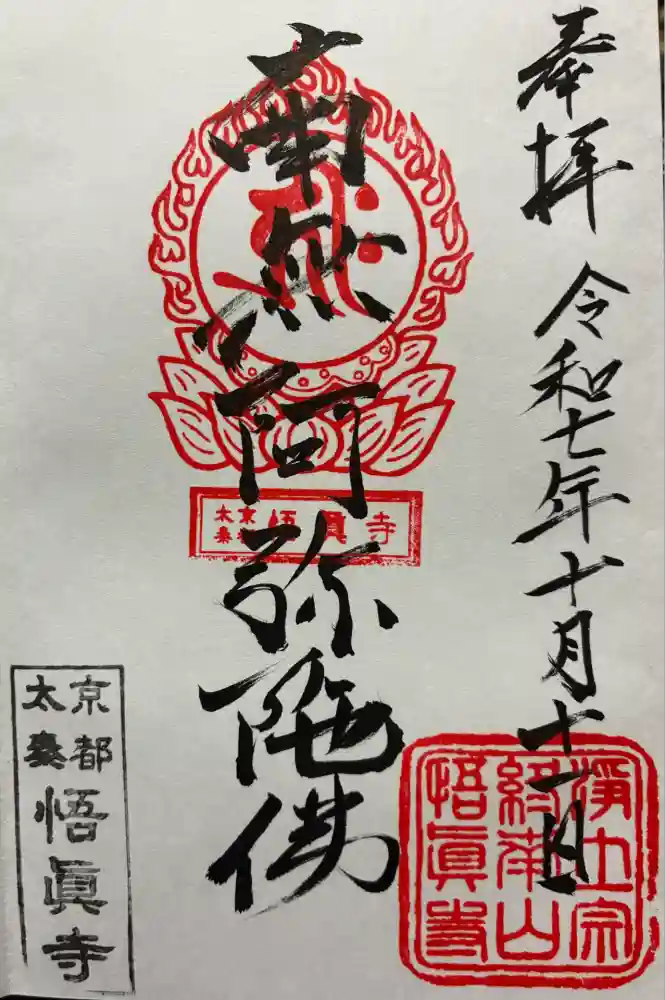 奉拝
令和七年十月十一日
南無阿弥陀佛
太秦 京都 悟眞寺
浄土宗
終南山
悟眞寺
京都
太秦
悟眞寺